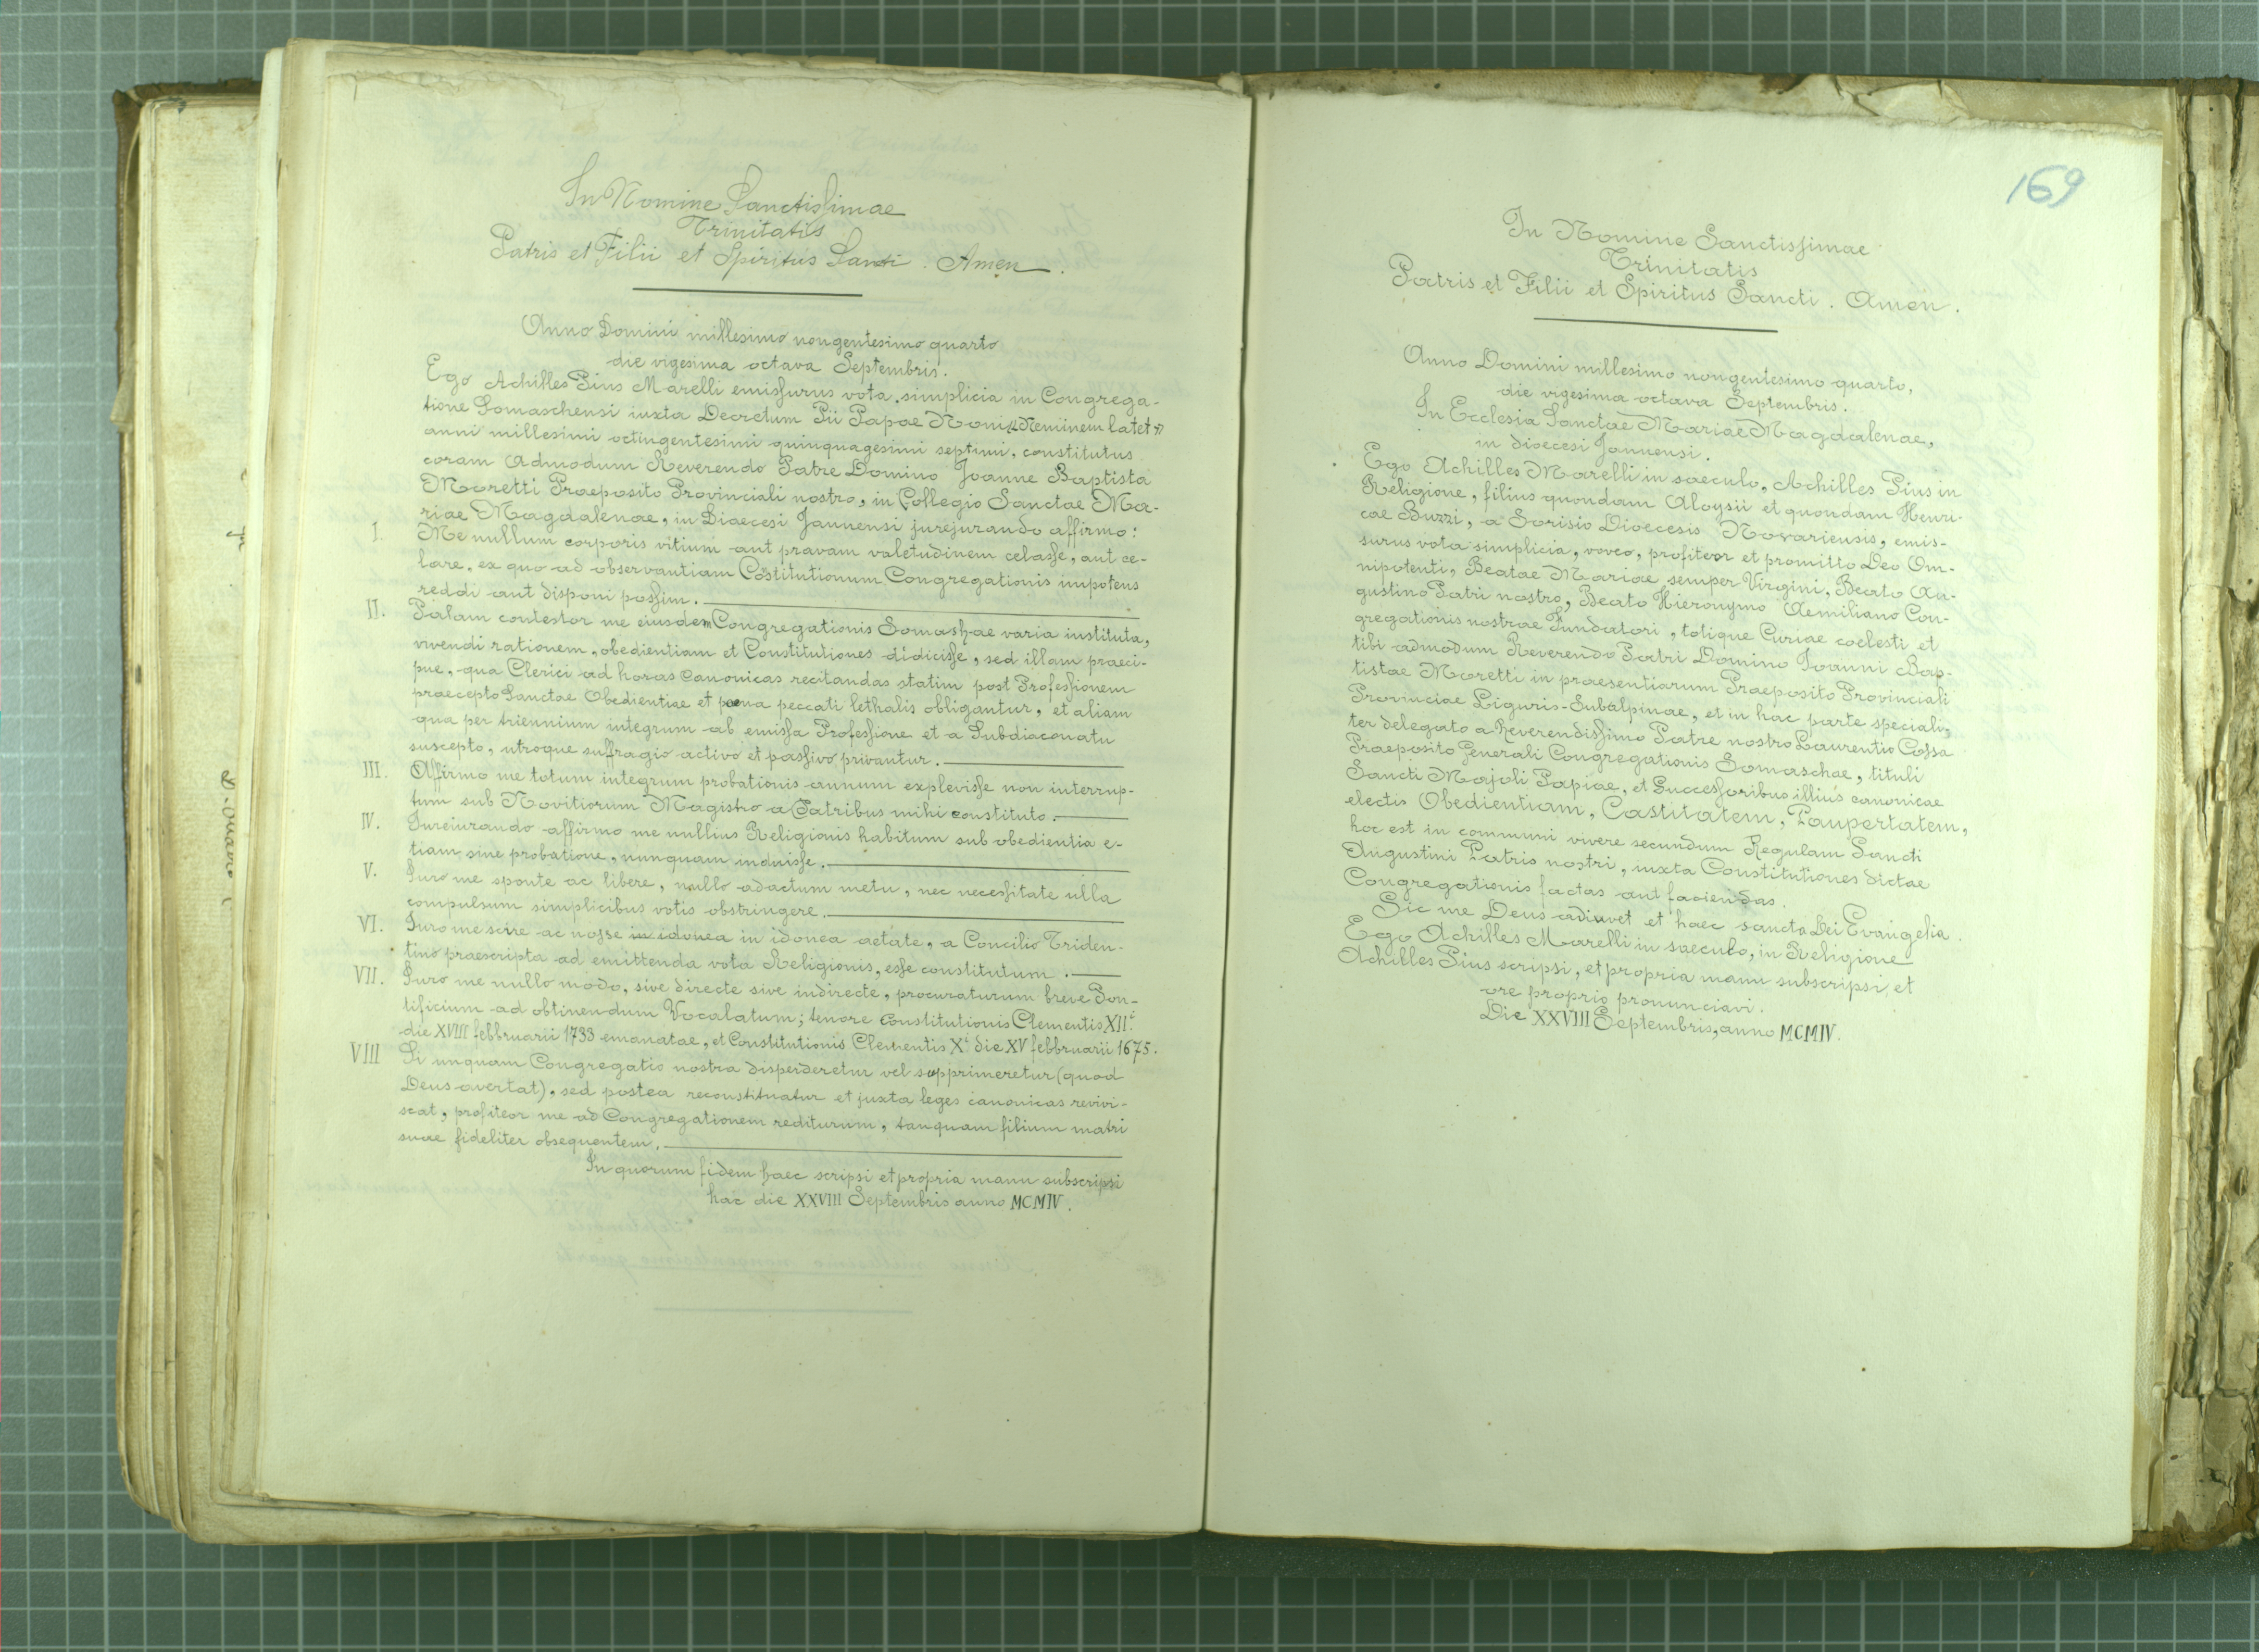 In Nomine Sanctissimae
Trinitatis
Patris et Filii et Spiritus Santi. Amen.
Anno Domini millesimo nongentesimo quarto
die vigesima octava Septembris.
Ego Achilles Pius Marelli emissurus vota simplicia in Congrega-
tione Somaschensi iuxta Decretum Pii Papae Noni "Neminem latet"
anni millesimi octingentesimi quinquagesimi septimi, constitutus
coram Admodum Reverendo Patre Domino Joanne Baptista
Moretti Praeposito Provinciali nostro, in Collegio Sanctae Ma-
riae Magdalenae, in Diaecesi Januensi jurejurando affirmo:
I. Me nullum corporis vitium aut pravam valetudinem celasse, aut ce-
lare, ex quo ad observantiam Costitutionum Congregationis impotens
reddi aut disponi possim.
II. Palam contestor me eiusdem Congregationis Somaschae varia instituta,
vivendi rationem, obedientiam et Constitutiones didicisse, sed illam praeci-
pue, qua Clerici ad horas canonicas recitandas statim post Professionem
praecepto Sanctae Obedientiae et poena peccati lethalis obligantur, et aliam
qua per triennium integrum ab emissa Professione et a Subdiaconatu
suscepto, utroque suffragio activo et passivo privantur.
III. Affirmo me totum integrum probationis annum explevisse non interrup-
tum sub Novitiorum Magistro a Patribus mihi constituto.
IV. Iureiurando affirmo me nullius Religionis habitum sub obedientia e-
tiam sine probatione, nunquam induisse.
V. Iuro me sponte ac libere, nullo adactum metu, nec necessitate ulla
compulsum simplicibus votis obstringere.
VI. Iuro me scire ac nosse in idonea in idonea aetate, a Concilio Triden-
tino praescripta ad emittenda vota Religionis, esse constitutum.
VII. Iuro me nullo modo, sive directe sive indirecte, procuraturum breve Pon-
tificium ad obtinendum Vocalatum; tenore Constitutionis Clementis XII.i
die XVIII febbruarii 1733 emanatae, et Constitutionis Clementis X.i die XV febbruarii 1675.
VIII Si unquam Congregatio nostra disperderetur vel supprimeretur (quod
Deus avertat), sed postea reconstituatur et juxta leges canonicas revivi-
scat, profiteor me ad Congregationem rediturum, tanquam filium matri
suae fideliter obsequentem.
In quorum fidem haec scripsi et propria manu subscripsi
hac die XXVIII Septembris anno MCMIV.
169
In Nomine Sanctissimae
Trinitatis
Patris et Filii et Spiritus Sancti. Amen.
Anno Domini millesimo nongentesimo quarto,
die vigesima octava Septembris.
In Ecclesia Sanctae Mariae Magdalenae,
in dioecesi Januensi.
Ego Achilles Marelli in saeculo, Achilles Pius in
Religione, filius quondam Aloysii et quondam Henri-
cae Buzzi, a Sorisio Dioecesis Novariensis, emis-
surus vota simplicia, voveo, profiteor et promitto Deo Om-
nipotenti, Beatae Mariae semper Virgini, Beato Au-
gustino Patri nostro, Beato Hieronymo Aemiliano Con-
gregationis nostrae Fundatori, totique Curiae coelesti et
tibi admodum Reverendo Patri Domino Ioanni Bap-
tistae Moretti in praesentiarum Praeposito Provinciali
Provinciae Liguris-Subalpinae, et in hac parte speciali-
ter delegato a Reverendissimo Patre nostro Laurentio Cossa
Praeposito Generali Congregationis Somaschae, tituli
Sancti Majoli Papiae, et Successoribus illius canonicae
electis Obedientiam, Castitatem, Paupertatem,
hoc est in communi vivere secundum Regulam Sancti
Augustini Patris nostri, iuxta Constitutiones dictae
Congregationis factas aut faciendas.
Sic me Deus adiuvet et haec sancta Dei Evangelia.
Ego Achilles Marelli in saeculo, in Religione
Achilles Pius scripsi, et propria manu subscripsi, et
ore proprio pronunciavi.
Die XXVIII Septembris, anno MCMIV.